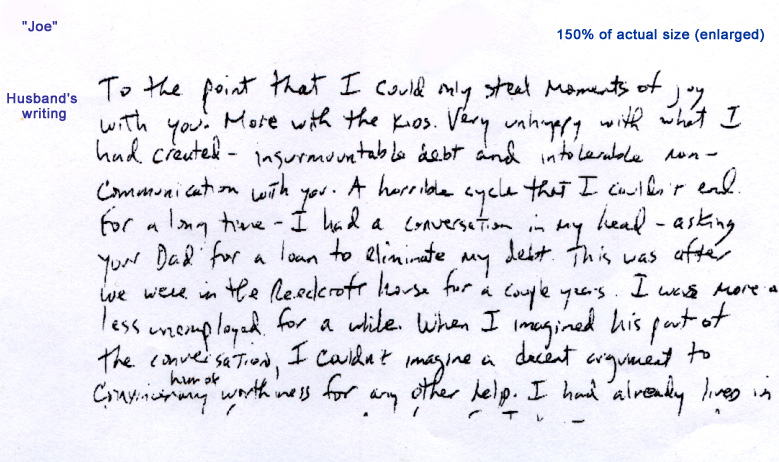 "Joe"
150% of actual size (enlarged)
Husband's
writing
To the point that I could only steal moments of joy
with you. More with the kids. Very unhappy with what I
had created - insurmountable debt and intolerable non-
communication with you. A horrible cycle that I couldn't end.
For a long time - I had a conversation in my head - asking
your Dad for a loan to eliminate my debt. This was after
we were in the Reedcroft house for a couple years. I was more o
less unemployed for a while. When I imagined his part of
the conversation, I couldn't imagine a decent argument to
him of
convincing worthiness for any other help. I had already lived in